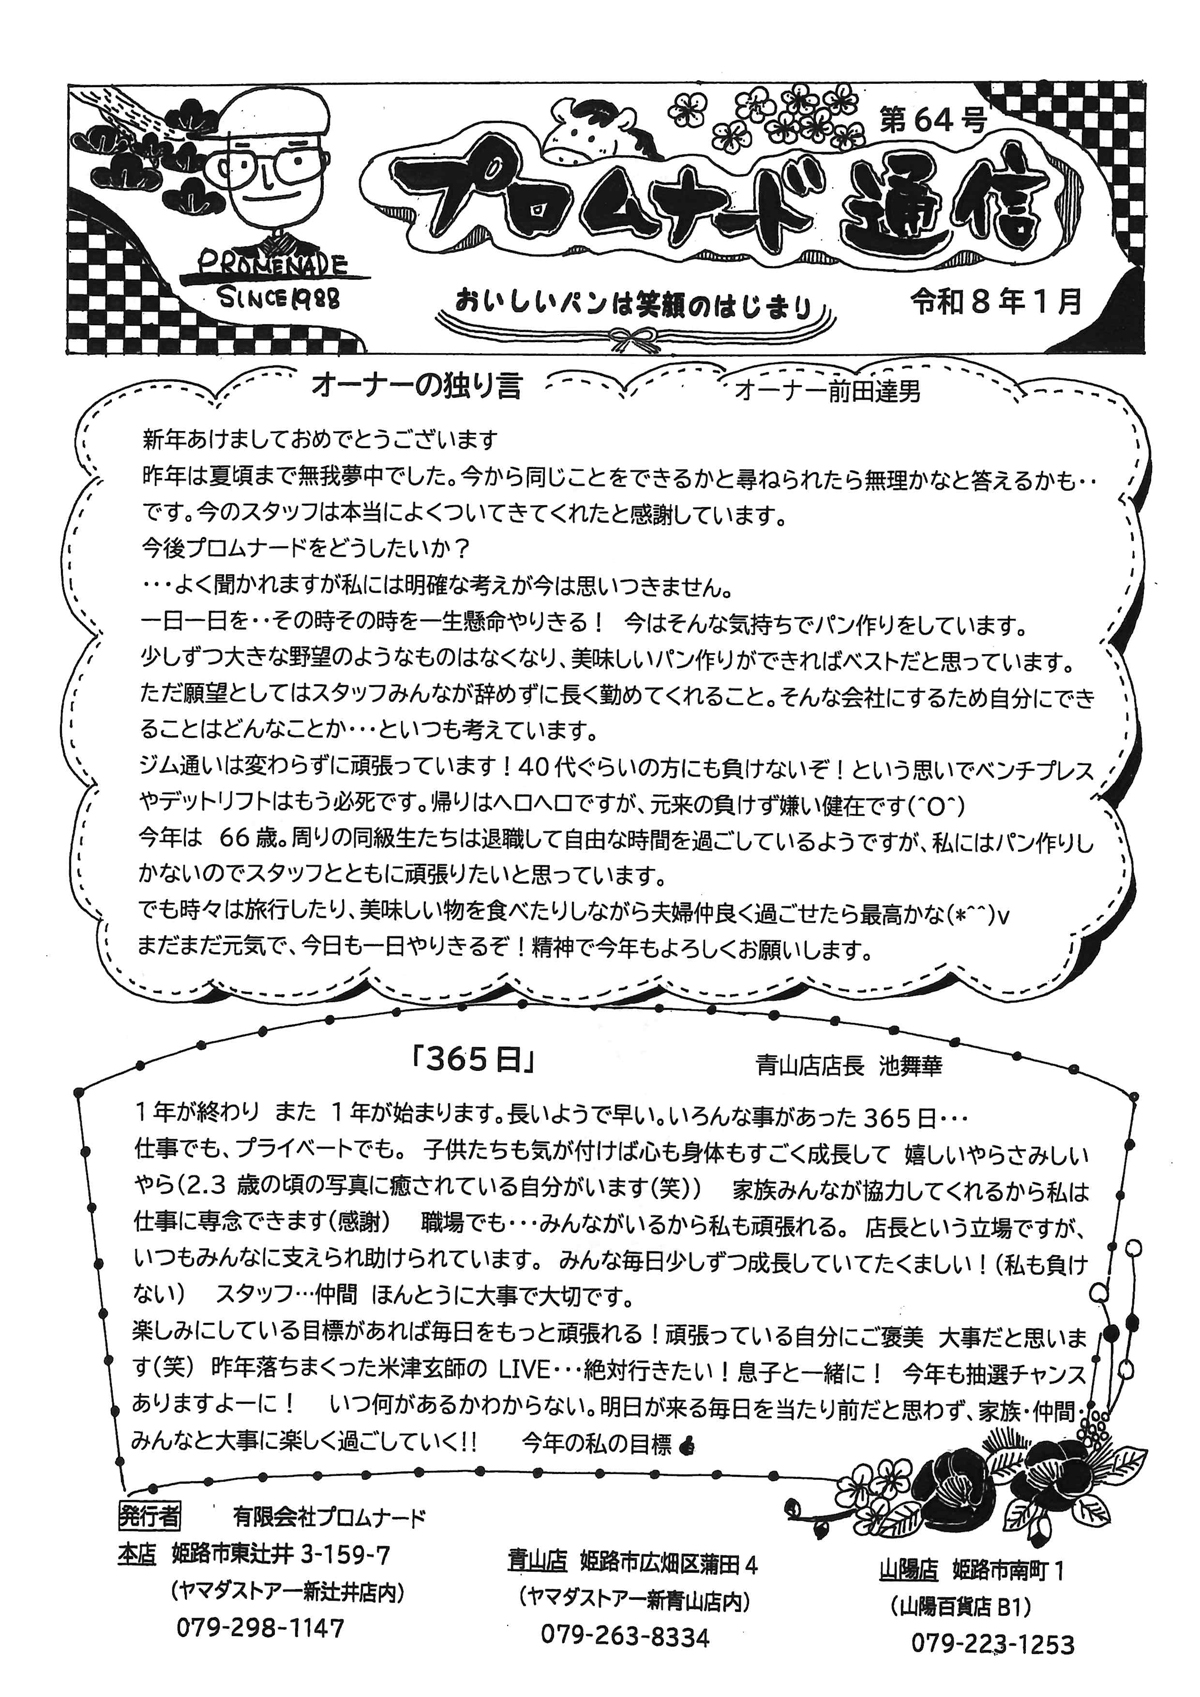 第64号
プロムナード通信
PROMENADE
SINCE1988
おいしいパンは笑顔のはじまり
令和8年1月
オーナーの独り言 オーナー前田達男
新年あけましておめでとうございます
昨年は夏頃まで無我夢中でした。今から同じことをできるかと尋ねられたら無理かなと答えるかも‥
です。今のスタッフは本当によくついてきてくれたと感謝しています。
今後プロムナードをどうしたいか？
･･･よく聞かれますが私には明確な考えが今は思いつきません。
一日一日を‥その時その時を一生懸命やりきる！ 今はそんな気持ちでパン作りをしています。
少しずつ大きな野望のようなものはなくなり、美味しいパン作りができればベストだと思っています。
ただ願望としてはスタッフみんなが辞めずに長く勤めてくれること。そんな会社にするため自分にでき
ることはどんなことか･･･といつも考えています。
ジム通いは変わらずに頑張っています！40代ぐらいの方にも負けないぞ！という思いでベンチプレス
やデットリフトはもう必死です。帰りはヘロヘロですが、元来の負けず嫌い健在です(^O^)
今年は 66歳。周りの同級生たちは退職して自由な時間を過ごしているようですが、私にはパン作りし
かないのでスタッフとともに頑張りたいと思っています。
でも時々は旅行したり、美味しい物を食べたりしながら夫婦仲良く過ごせたら最高かな(*^^)v
まだまだ元気で、今日も一日やりきるぞ！精神で今年もよろしくお願いします。
「365日」 青山店店長 池舞華
1年が終わり また 1年が始まります。長いようで早い。いろんな事があった365日･･･
仕事でも、プライベートでも。 子供たちも気が付けば心も身体もすごく成長して 嬉しいやらさみしい
やら(2.3歳の頃の写真に癒されている自分がいます(笑)) 家族みんなが協力してくれるから私は
仕事に専念できます(感謝) 職場でも･･･みんながいるから私も頑張れる。 店長という立場ですが、
いつもみんなに支えられ助けられています。 みんな毎日少しずつ成長していてたくましい！(私も負け
ない) スタッフ…仲間 ほんとうに大事で大切です。
楽しみにしている目標があれば毎日をもっと頑張れる！頑張っている自分にご褒美 大事だと思いま
す(笑) 昨年落ちまくった米津玄師の LIVE･･･絶対行きたい！息子と一緒に！ 今年も抽選チャンス
ありますよーに！ いつ何があるかわからない。明日が来る毎日を当たり前だと思わず、家族・仲間・
みんなと大事に楽しく過ごしていく!! 今年の私の目標👍
発行者 有限会社プロムナード
本店 姫路市東辻井3-159-7
(ヤマダストアー新辻井店内)
079-298-1147
青山店 姫路市広畑区蒲田4
(ヤマダストアー新青山店内)
079-263-8334
山陽店 姫路市南町1
(山陽百貨店B1)
079-223-1253